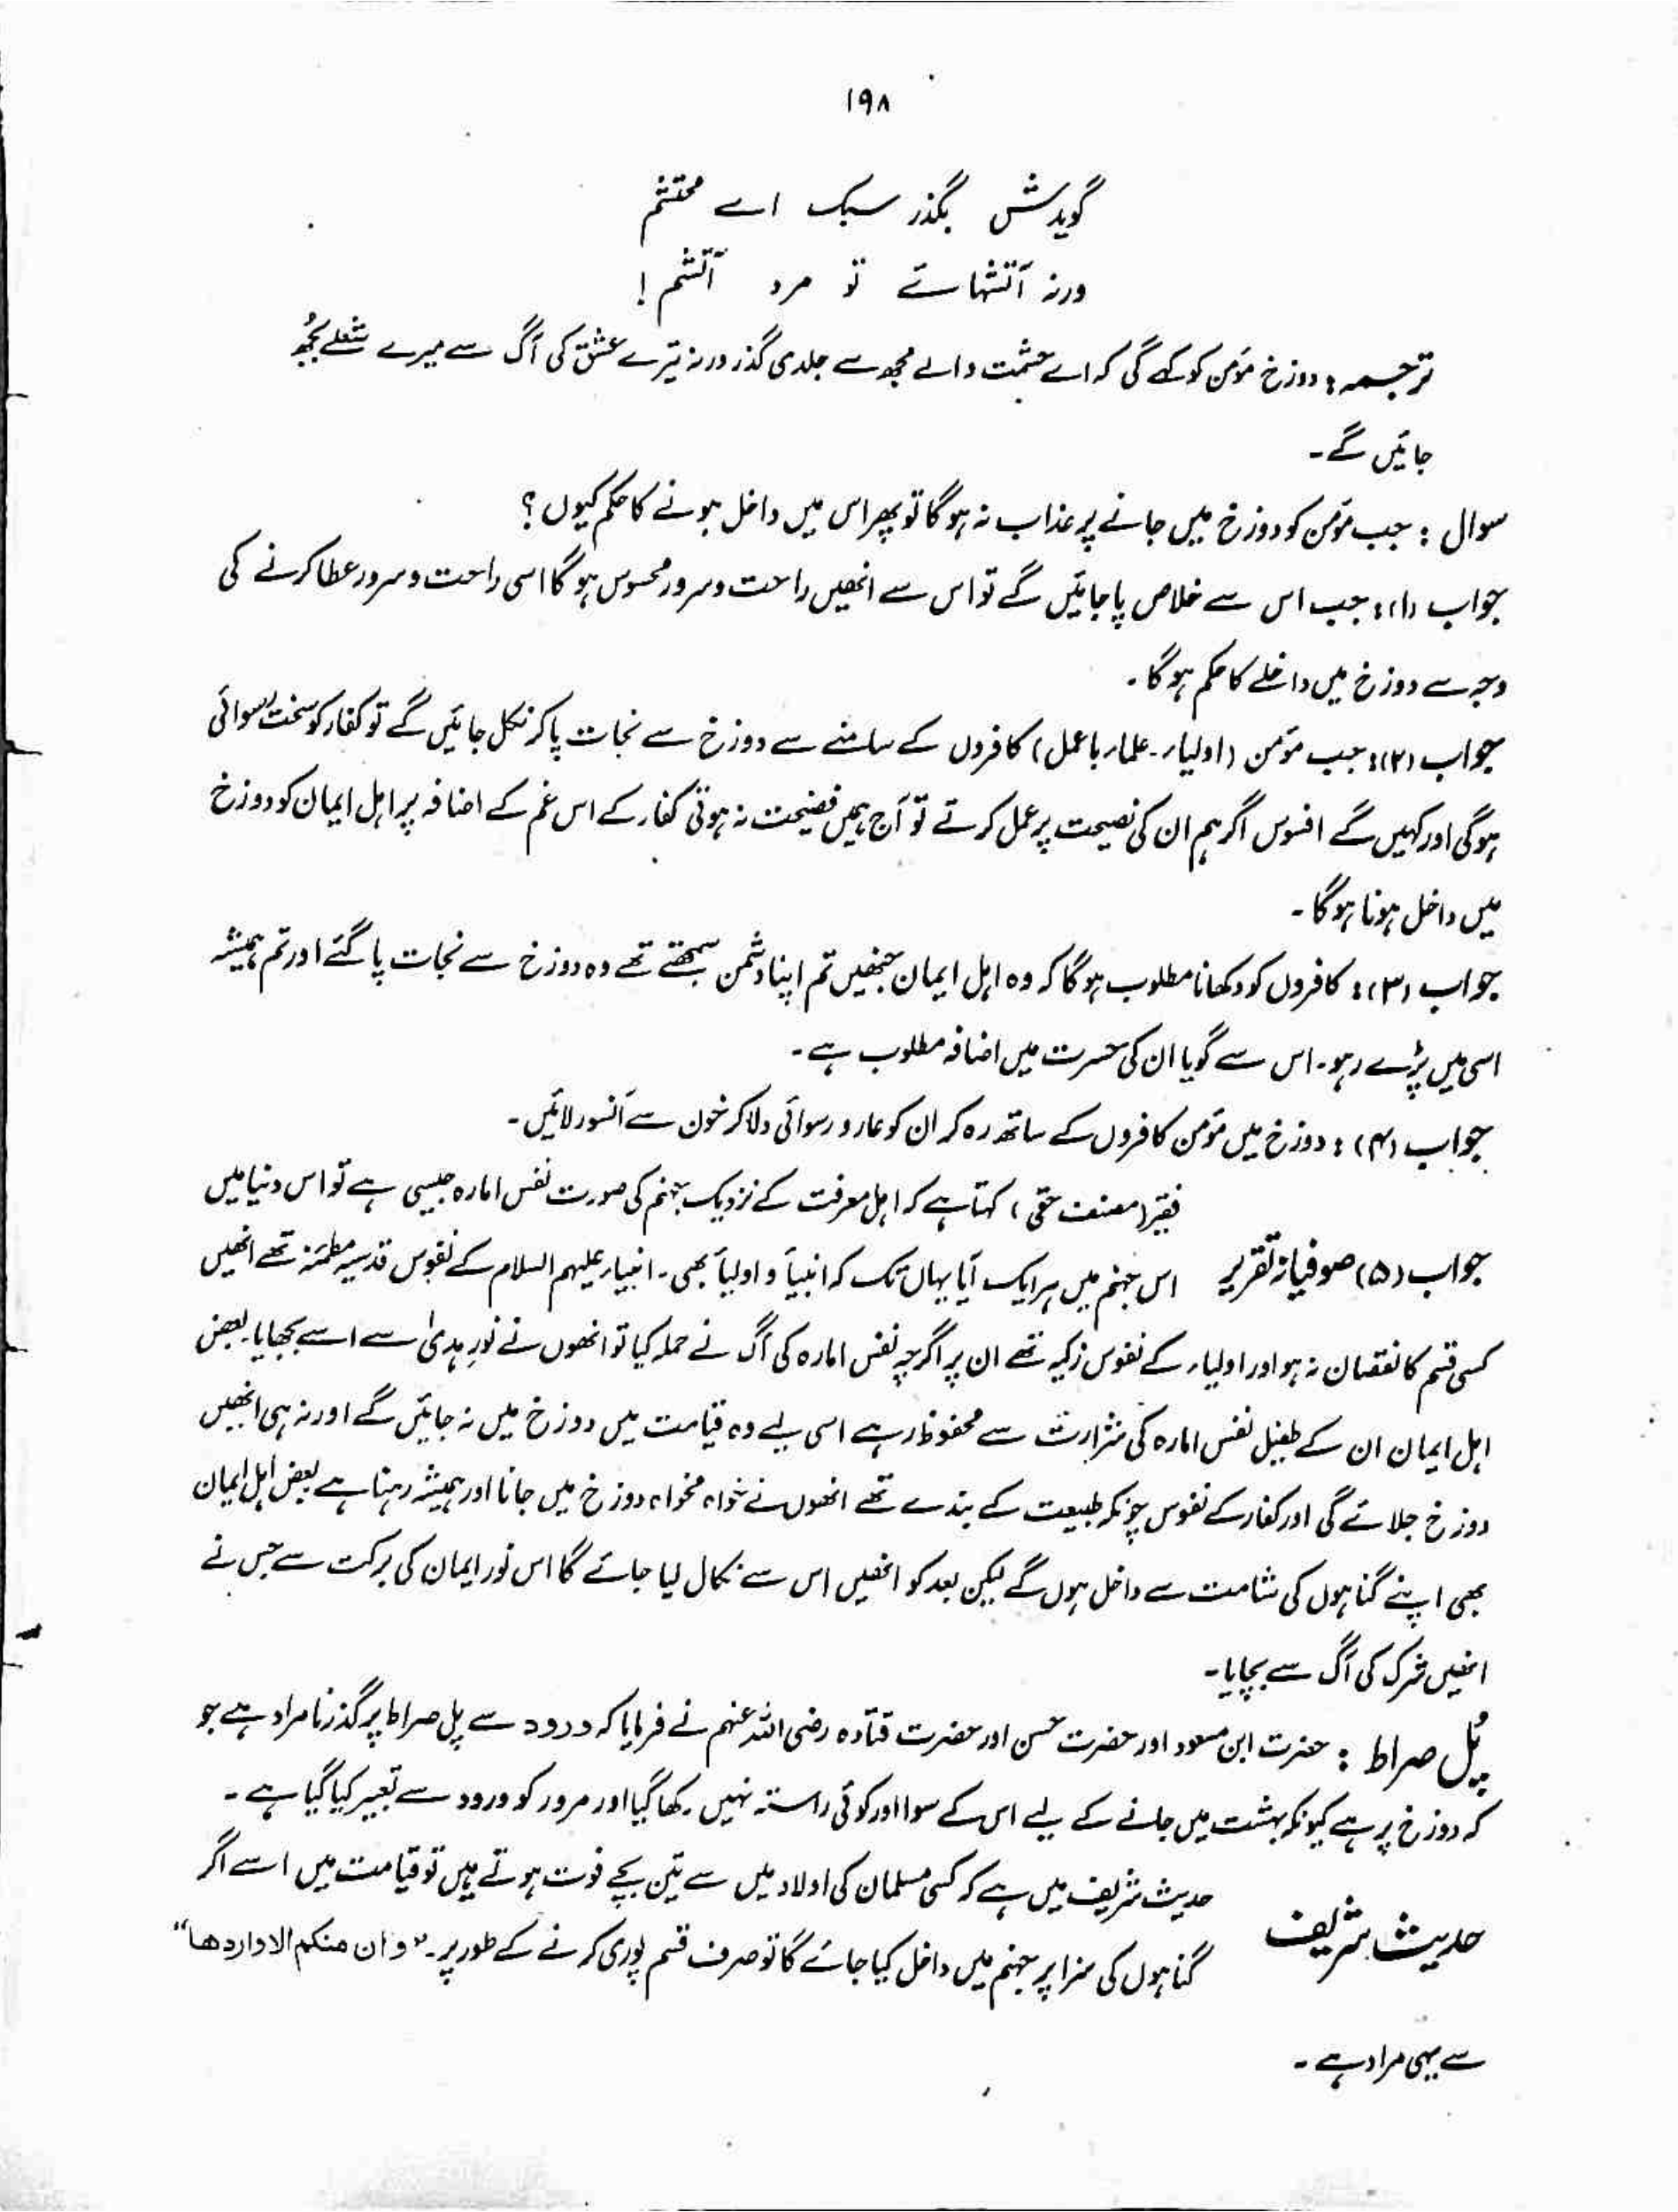 ۱۹۸
گویدش بگذر سبک اے محتشم
ورنہ آتشہائے تو مرد آتشم !
ترجمہ : دوزخ مؤمن کو کہے گی کہ اے حشمت والے مجھ سے جلدی گذر ورنہ تیرے عشق کی آگ سے میرے شعلے بُجھ
جائیں گے ۔
سوال : جب مؤمن کو دوزخ میں جانے پر عذاب نہ ہوگا تو پھر اس میں داخل ہونے کا حکم کیوں ؟
جواب (۱) : جب اس سے خلاص پا جائیں گے تو اس سے انھیں راحت و سرور محسوس ہوگا اسی راحت و سرور عطا کرنے کی
وجہ سے دوزخ میں داخلے کا حکم ہوگا ۔
جواب (۲) : جب مؤمن (اولیاء ۔ علماء باعمل) کافروں کے سامنے سے دوزخ سے نجات پا کر نکل جائیں گے تو کفار کو سخت رسوائی
ہوگی اور کہیں گے افسوس اگر ہم ان کی نصیحت پر عمل کرتے تو آج ہمیں فضیحت نہ ہوتی کفار کے اس غم کے اضافہ پر اہل ایمان کو دوزخ
میں داخل ہونا ہوگا ۔
جواب (۳) : کافروں کو دکھانا مطلوب ہوگا کہ وہ اہل ایمان جنھیں تم اپنا دشمن سمجھتے تھے وہ دوزخ سے نجات پا گئے اور تم ہمیشہ
اسی میں پڑے رہو ۔ اس سے گویا ان کی حسرت میں اضافہ مطلوب ہے ۔
جواب (۴) : دوزخ میں مؤمن کافروں کے ساتھ رہ کر ان کو عار و رسوائی دلا کر خون سے آنسو رلائیں ۔
فقیر (مصنف حقی) کہتا ہے کہ اہل معرفت کے نزدیک جہنم کی صورت نفس امارہ جیسی ہے تو اس دنیا میں
جواب (۵) صوفیانہ تقریر اس جہنم میں ہر ایک آیا یہاں تک کہ انبیاً و اولیاً بھی ۔ انبیاء علیہم السلام کے نفوس قدسیہ مطمئنہ تھے انھیں
کسی قسم کا نقصان نہ ہو اور اولیاء کے نفوس زکیہ تھے ان پر اگرچہ نفس امارہ کی آگ نے حملہ کیا تو انھوں نے نورِ ہدیٰ سے اسے بجھایا ۔ بعض
اہل ایمان ان کے طفیل نفس امارہ کی شرارت سے محفوظ رہے اسی لیے وہ قیامت میں دوزخ میں نہ جائیں گے اور نہ ہی انھیں
دوزخ جلائے گی اور کفار کے نفوس چونکہ طبیعت کے بندے تھے انھوں نے خواہ مخواہ دوزخ میں جانا اور ہمیشہ رہنا ہے بعض اہل ایمان
بھی اپنے گناہوں کی شامت سے داخل ہوں گے لیکن بعد کو انھیں اس سے نکال لیا جائے گا اس نور ایمان کی برکت سے جس نے
انھیں شرک کی آگ سے بچایا ۔
پُل صراط : حضرت ابن مسعود اور حضرت حسن اور حضرت قتادہ رضی اللہ عنہم نے فرمایا کہ ورود سے پل صراط پر گذرنا مراد ہے جو
کہ دوزخ پر ہے کیونکہ بہشت میں جانے کے لیے اس کے سوا اور کوئی راستہ نہیں رکھا گیا اور مرور کو ورود سے تعبیر کیا گیا ہے ۔
حدیث شریف میں ہے کہ کسی مسلمان کی اولاد میں سے تین بچے فوت ہوتے ہیں تو قیامت میں اسے اگر
حدیث شریف گناہوں کی سزا پر جہنم میں داخل کیا جائے گا تو صرف قسم پوری کرنے کے طور پر ۔ "وان منکم الا واردھا"
سے یہی مراد ہے ۔